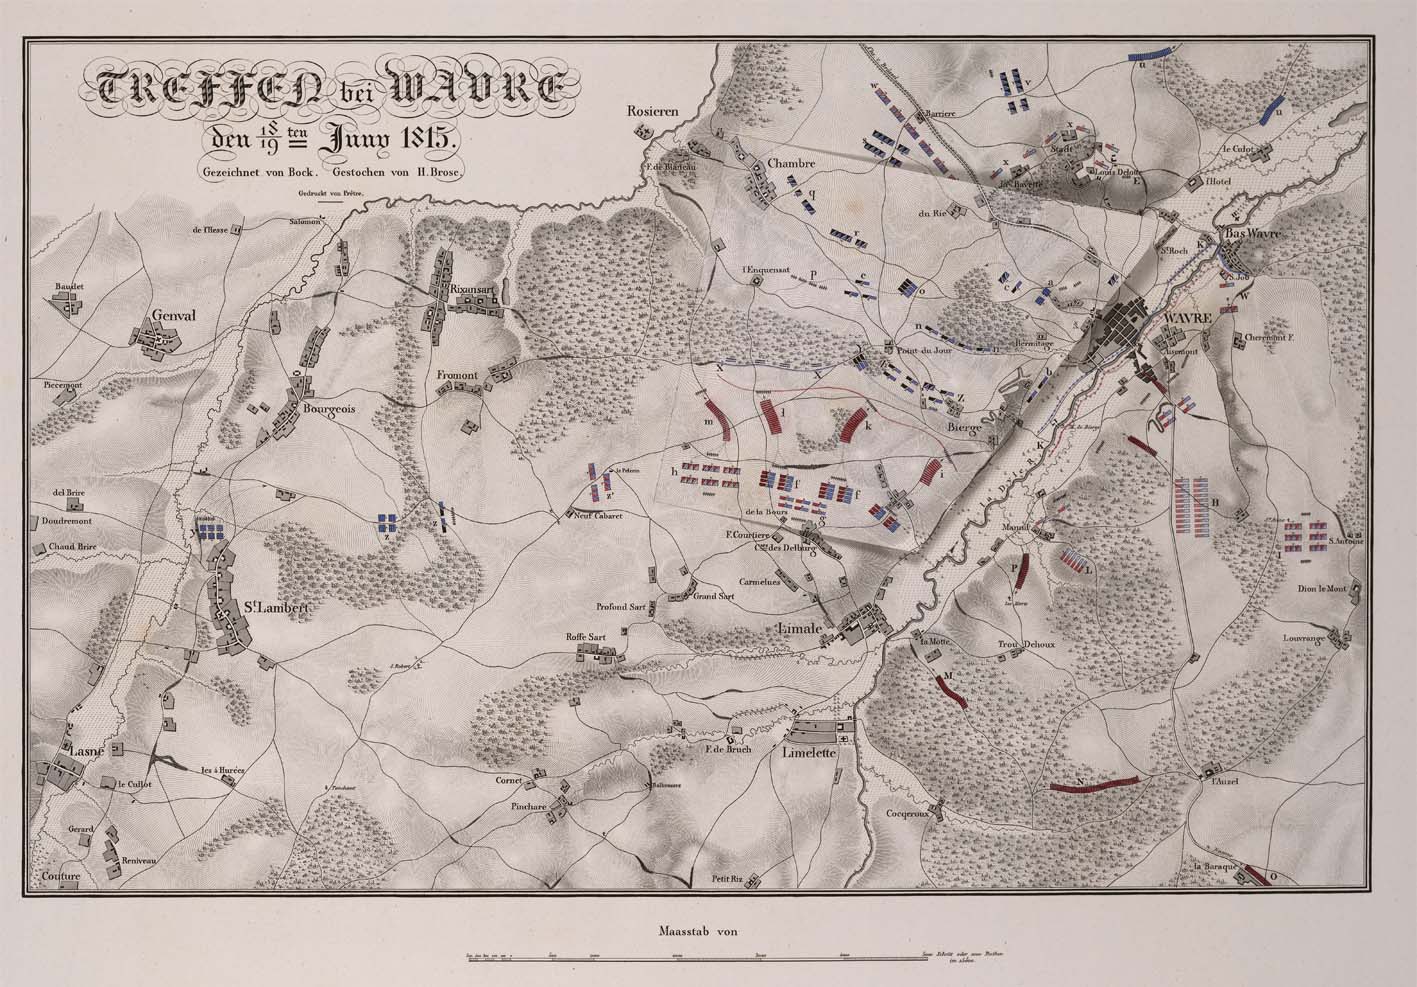 TREFFEN bei WAVRE
den 18/19 ten Juny 1815.
Gezeichnet von Bock. Gestochen von H. Brose.
Gedruckt von Prêtre.
Rosieren
Barriere
v
u
u
w
x
Stadt
le Culot
F. de Bilanau
Chambre
x
la Bavette
Louis Delotte
E
l'Hotel
q
du Rie
Salomon
de l'Hesse
r
St. Roch
K
Bas Wavre
St. Job
Baudet
Rixansart
l'Enquensat
p
c
o
c
a
W
Genval
WAVRE
n
n
l'Hermitage
Point du Jour
Aisemont
Cheremont F.
X
X
Z
b
Piecemont
Fromont
Bourgeois
m
l
k
Bierge
M. de Bierge
K
R
La Dyle
h
f
f
i
H
z'
de la Bours
g
Neuf Cabaret
z
z
F. Courtiere
Cau des Delburg
del Brire
Doudremont
Chaud Brire
y
Manul
P
L
I
S. Antoine
Dion le Mont
Carmelues
Grand Sart
Profond Sart
St. Lambert
Limale
Roffe Sart
la Motte
Trou Dehoux
Louvrange
J. Robert
M
Lasne
le Cullot
les 4 Hurées
F. de Bruch
Limelette
Cornet
Pinchare
N
l'Auzel
Cocqeroux
Gerard
Reniveau
Couture
Petit Riz
la Baraque
O
Maasstab von